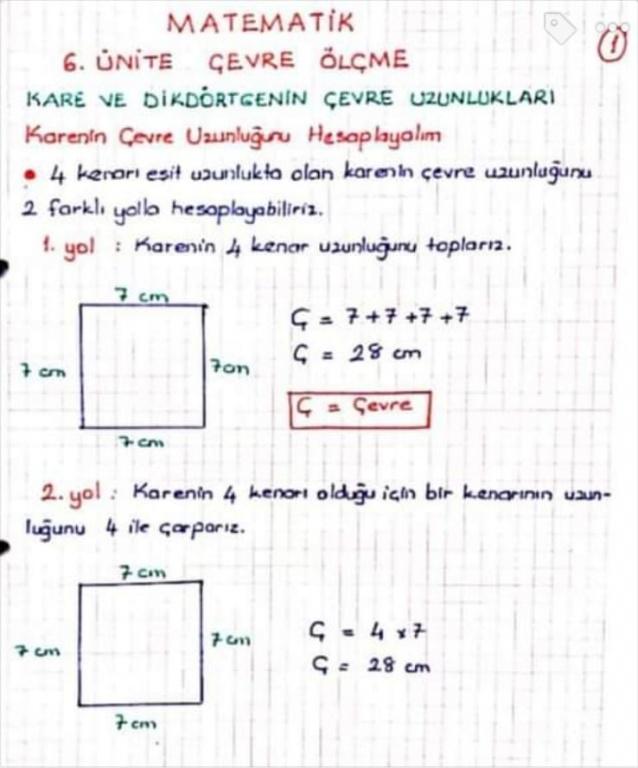 MATEMATİK
1
6. ÜNİTE ÇEVRE ÖLÇME
KARE VE DİKDÖRTGENİN ÇEVRE UZUNLUKLARI
Karenin Çevre Uzunluğunu Hesaplayalım
• 4 kenarı eşit uzunlukta olan karenin çevre uzunluğunu
2 farklı yolla hesaplayabiliriz.
1. yol : Karenin 4 kenar uzunluğunu toplarız.
7 cm
Ç = 7+7+7+7
Ç = 28 cm
7 cm
7cm
Ç = Çevre
7 cm
2. yol : Karenin 4 kenarı olduğu için bir kenarının uzun-
luğunu 4 ile çarparız.
7 cm
7 cm
7 cm
Ç = 4 x 7
Ç = 28 cm
7 cm